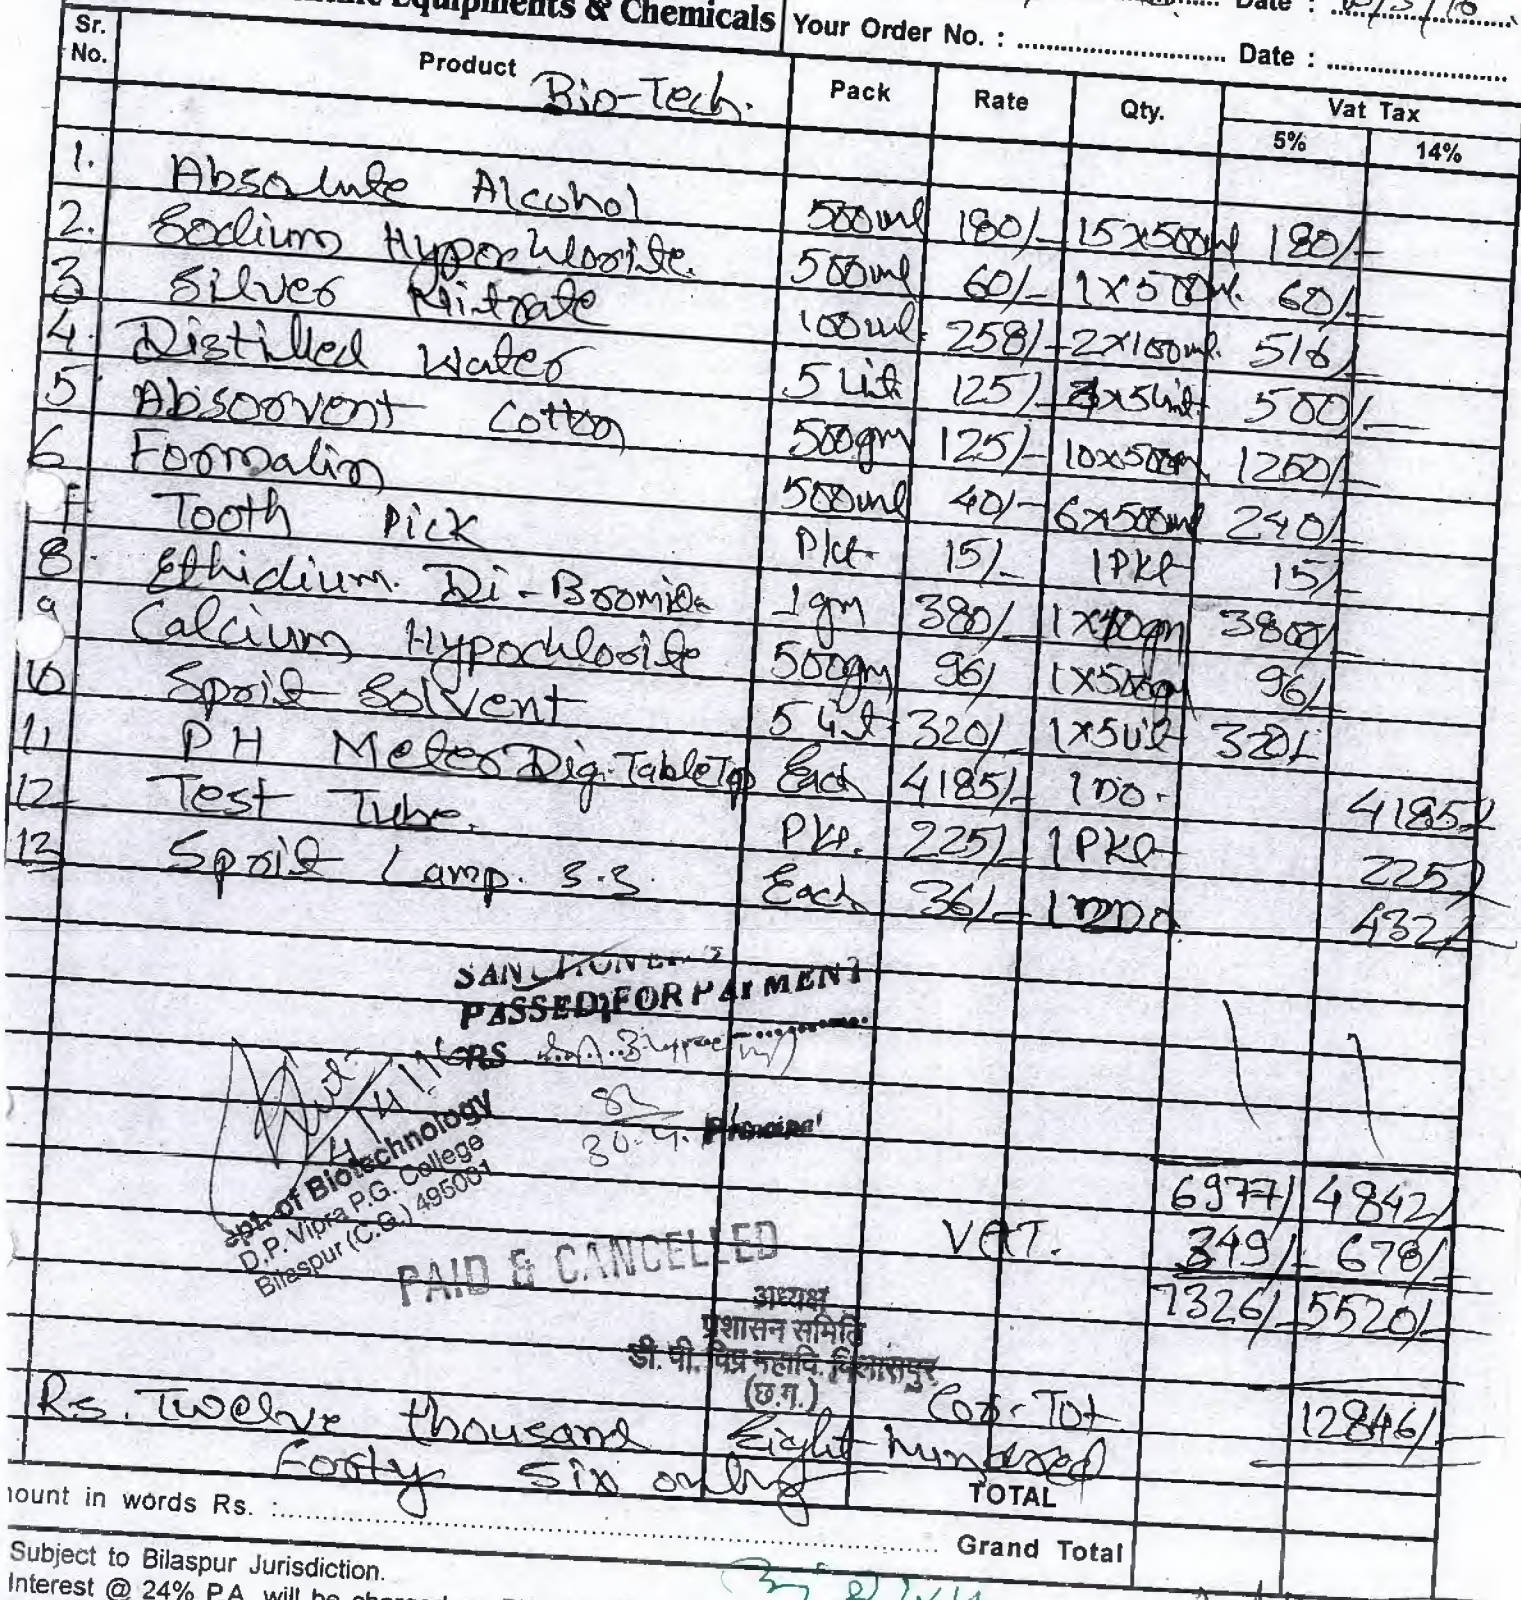 Equipments & Chemicals Your Order No. : Date :
Date :
Sr. No. Product Bio-Tech. Pack Rate Qty. Vat Tax
5% 14%
1. Absolute Alcohol 500ml 180/- 15x500ml 180/-
2. Sodium Hypochlorite. 500ml 60/- 1x500ml. 60/-
3 Silver Nitrate 100ml. 258/- 2x100ml. 516/-
4. Distilled Water 5 Lit. 125/- 4x5Lit. 500/-
5 Absorvent Cotton 500gm 125/- 10x500gm 1250/-
6 Formalin 500ml 40/- 6x500ml 240/-
7 Tooth Pick Pkt. 15/- 1Pkt 15/-
8. Ethidium. Di-Bromide 1gm 380/- 1x10gm 3800/-
9 Calcium Hypochlorite 500gm 96/ 1x500gm 96/-
10 Sprit Solvent 5 Lit. 320/- 1x5Lit 320/-
11 PH Meter Dig. Table Top Each 4185/- 1 DO. 4185/-
12 Test Tube. Pkt. 225/- 1 Pkt 225/
13 Sprit Lamp. S.S. Each 36/- 432/
PASSED FOR PAYMENT
RS
30.4. Principal
4/4/16
ept. of Biotechnology
D.P. Vipra P.G. College
Bilaspur (C.G.) 495001
6977/ 4842/
VAT. 349/- 678/-
7326/- 5520/-
PAID & CANCELLED
अध्यक्ष
प्रशासन समिति
डी. पी. विप्र महावि. बिलासपुर
(छ.ग.)
Tot 12846/-
Rs. Twelve thousand Eight hundred
Forty Six only
TOTAL
mount in words Rs. : Grand Total
Subject to Bilaspur Jurisdiction.
Interest @ 24% P.A. will be